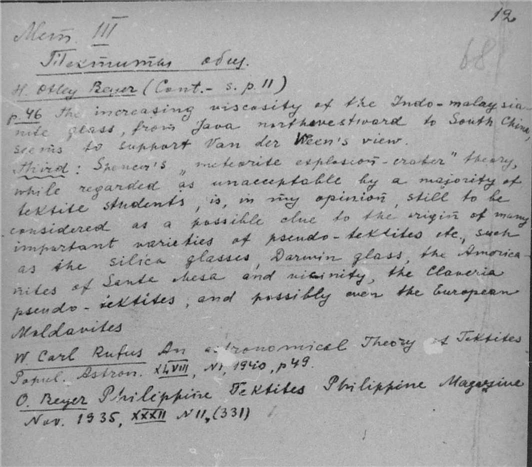 12
Мет. III
681
Тектиты общ.
H. Otley Beyer (Cont.- s. p. 11)
p. 46 The increasing viscosity of the Indo-malaysia-
nite glass, from Java northwestward to South China,
seems to support Van der Veen's view.
third: Spencer's „meteorite explosion-crater" theory,
while regarded as unacceptable by a majority of
tektite students, is, in my opinion, still to be
considered as a possible clue to the origin of many
important varieties of pseudo-tektites etc, such
as the silica glasses, Darwin glass, the America-
nites of Sante Mesa and vicinity, the Claveria
pseudo-tektites, and possibly even the European
Moldavites
W Carl Rufus An astronomical Theory of Tektites
Popul. Astron. XLVIII, N1, 1940, p 49.
O. Beyer Philippine Tektites Philippine Magazine
Nov. 1935, XXXII N 11, (331)